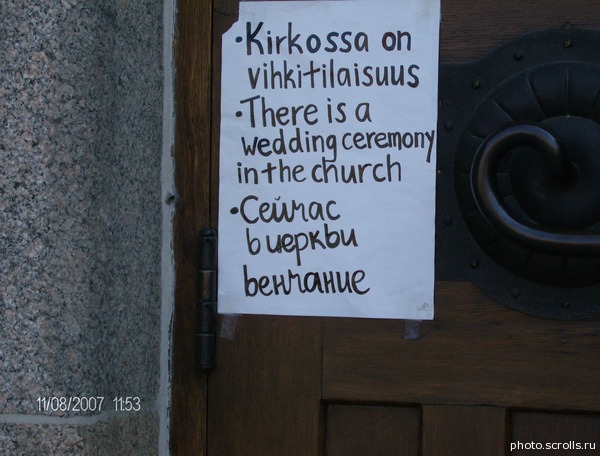 • Kirkossa on
vihkitilaisuus
• There is a
wedding ceremony
in the church
• Сейчас
в церкви
венчание
11/08/2007 11:53
photo.scrolls.ru